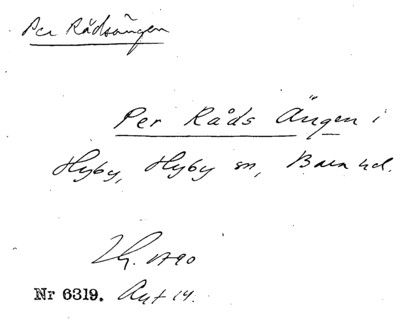 Per Rådsängen
Per Råds Ängen i
Hyby, Hyby sn, Bara hd.
1790
Nr 6319. Akt 14.